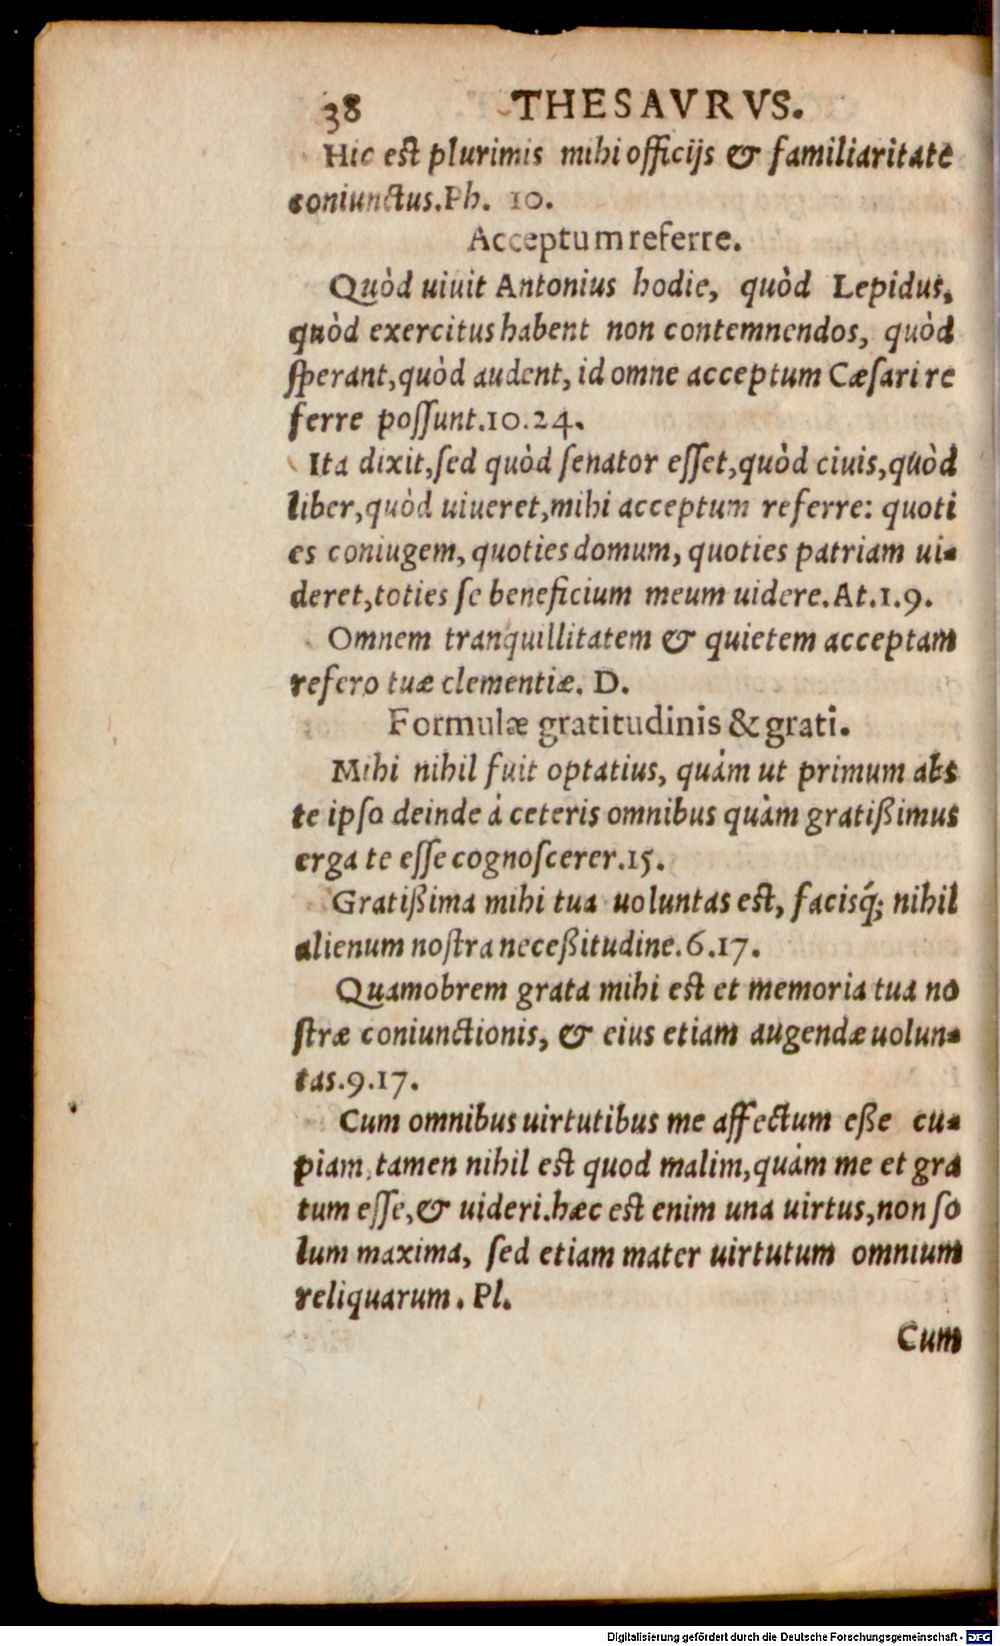 38 THESAVRVS.
Hic est plurimis mihi officijs & familiaritate
coniunctus.Ph. 10.
Acceptum referre.
Quòd uiuit Antonius hodie, quòd Lepidus,
quòd exercitus habent non contemnendos, quòd
sperant,quòd audent, id omne acceptum Cæsari re
ferre possunt.10.24.
Ita dixit,sed quòd senator esset,quòd ciuis,quòd
liber,quòd uiueret,mihi acceptum referre: quoti
es coniugem, quoties domum, quoties patriam ui-
deret,toties se beneficium meum uidere.At.1.9.
Omnem tranquillitatem & quietem acceptam
refero tuæ clementiæ. D.
Formulæ gratitudinis & grati.
Mihi nihil fuit optatius, quàm ut primum abs
te ipso deinde à ceteris omnibus quàm gratißimus
erga te esse cognoscerer.15.
Gratißima mihi tua uoluntas est, facisq́; nihil
alienum nostra neceßitudine.6.17.
Quamobrem grata mihi est et memoria tua no
stræ coniunctionis, & eius etiam augendæ uolun-
tas.9.17.
Cum omnibus uirtutibus me affectum eße cu-
piam,tamen nihil est quod malim,quàm me et gra
tum esse,& uideri.hæc est enim una uirtus,non so
lum maxima, sed etiam mater uirtutum omnium
reliquarum. Pl.
Cum
Digitalisierung gefördert durch die Deutsche Forschungsgemeinschaft - DFG